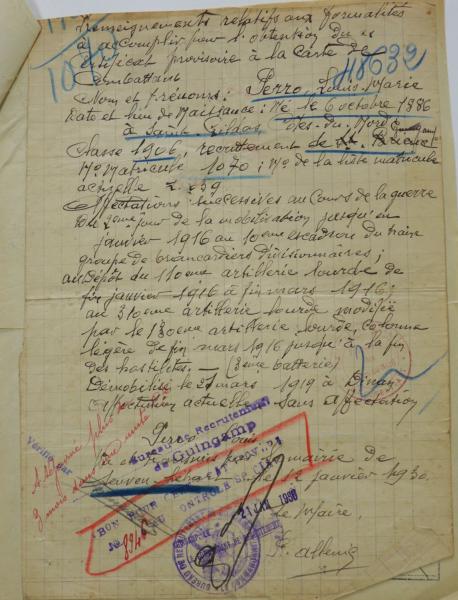 Renseignements relatifs aux formalités
à accomplir pour l'obtention du
Certificat provisoire à la Carte de
Combattant
118632
Nom et prénoms : Perro, Louis Marie
Date et lieu de Naissance : Né le 6 octobre 1886
à Saint-Gildas, Côtes-du-Nord
Classe 1906, recrutement de St. Brieuc
No matricule 1070 ; No de la liste matricule
actuelle
Affectations successives au cours de la guerre
Du 2ème jour de la mobilisation jusqu'en
janvier 1916 au 10ème escadron du train
groupe de brancardiers divisionnaires ;
au dépôt du 110ème artillerie lourde de
fin janvier 1916 à fin mars 1916 ;
au 310ème artillerie lourde modifiée
par le 130ème artillerie lourde, colonne
légère de fin mars 1916 jusqu'à la fin
des hostilités. — (3ème batterie)
Démobilisé le mars 1919 à Dinan
Affectation actuelle : Sans affectation
Perro Louis
mairie de
le 12 janvier 1930
Bureau de Recrutement
de Guingamp
Vérifié par
A séjourné plus de
3 mois dans une unité
BON POUR
No 8946
21 JAN 1930
Le Maire,